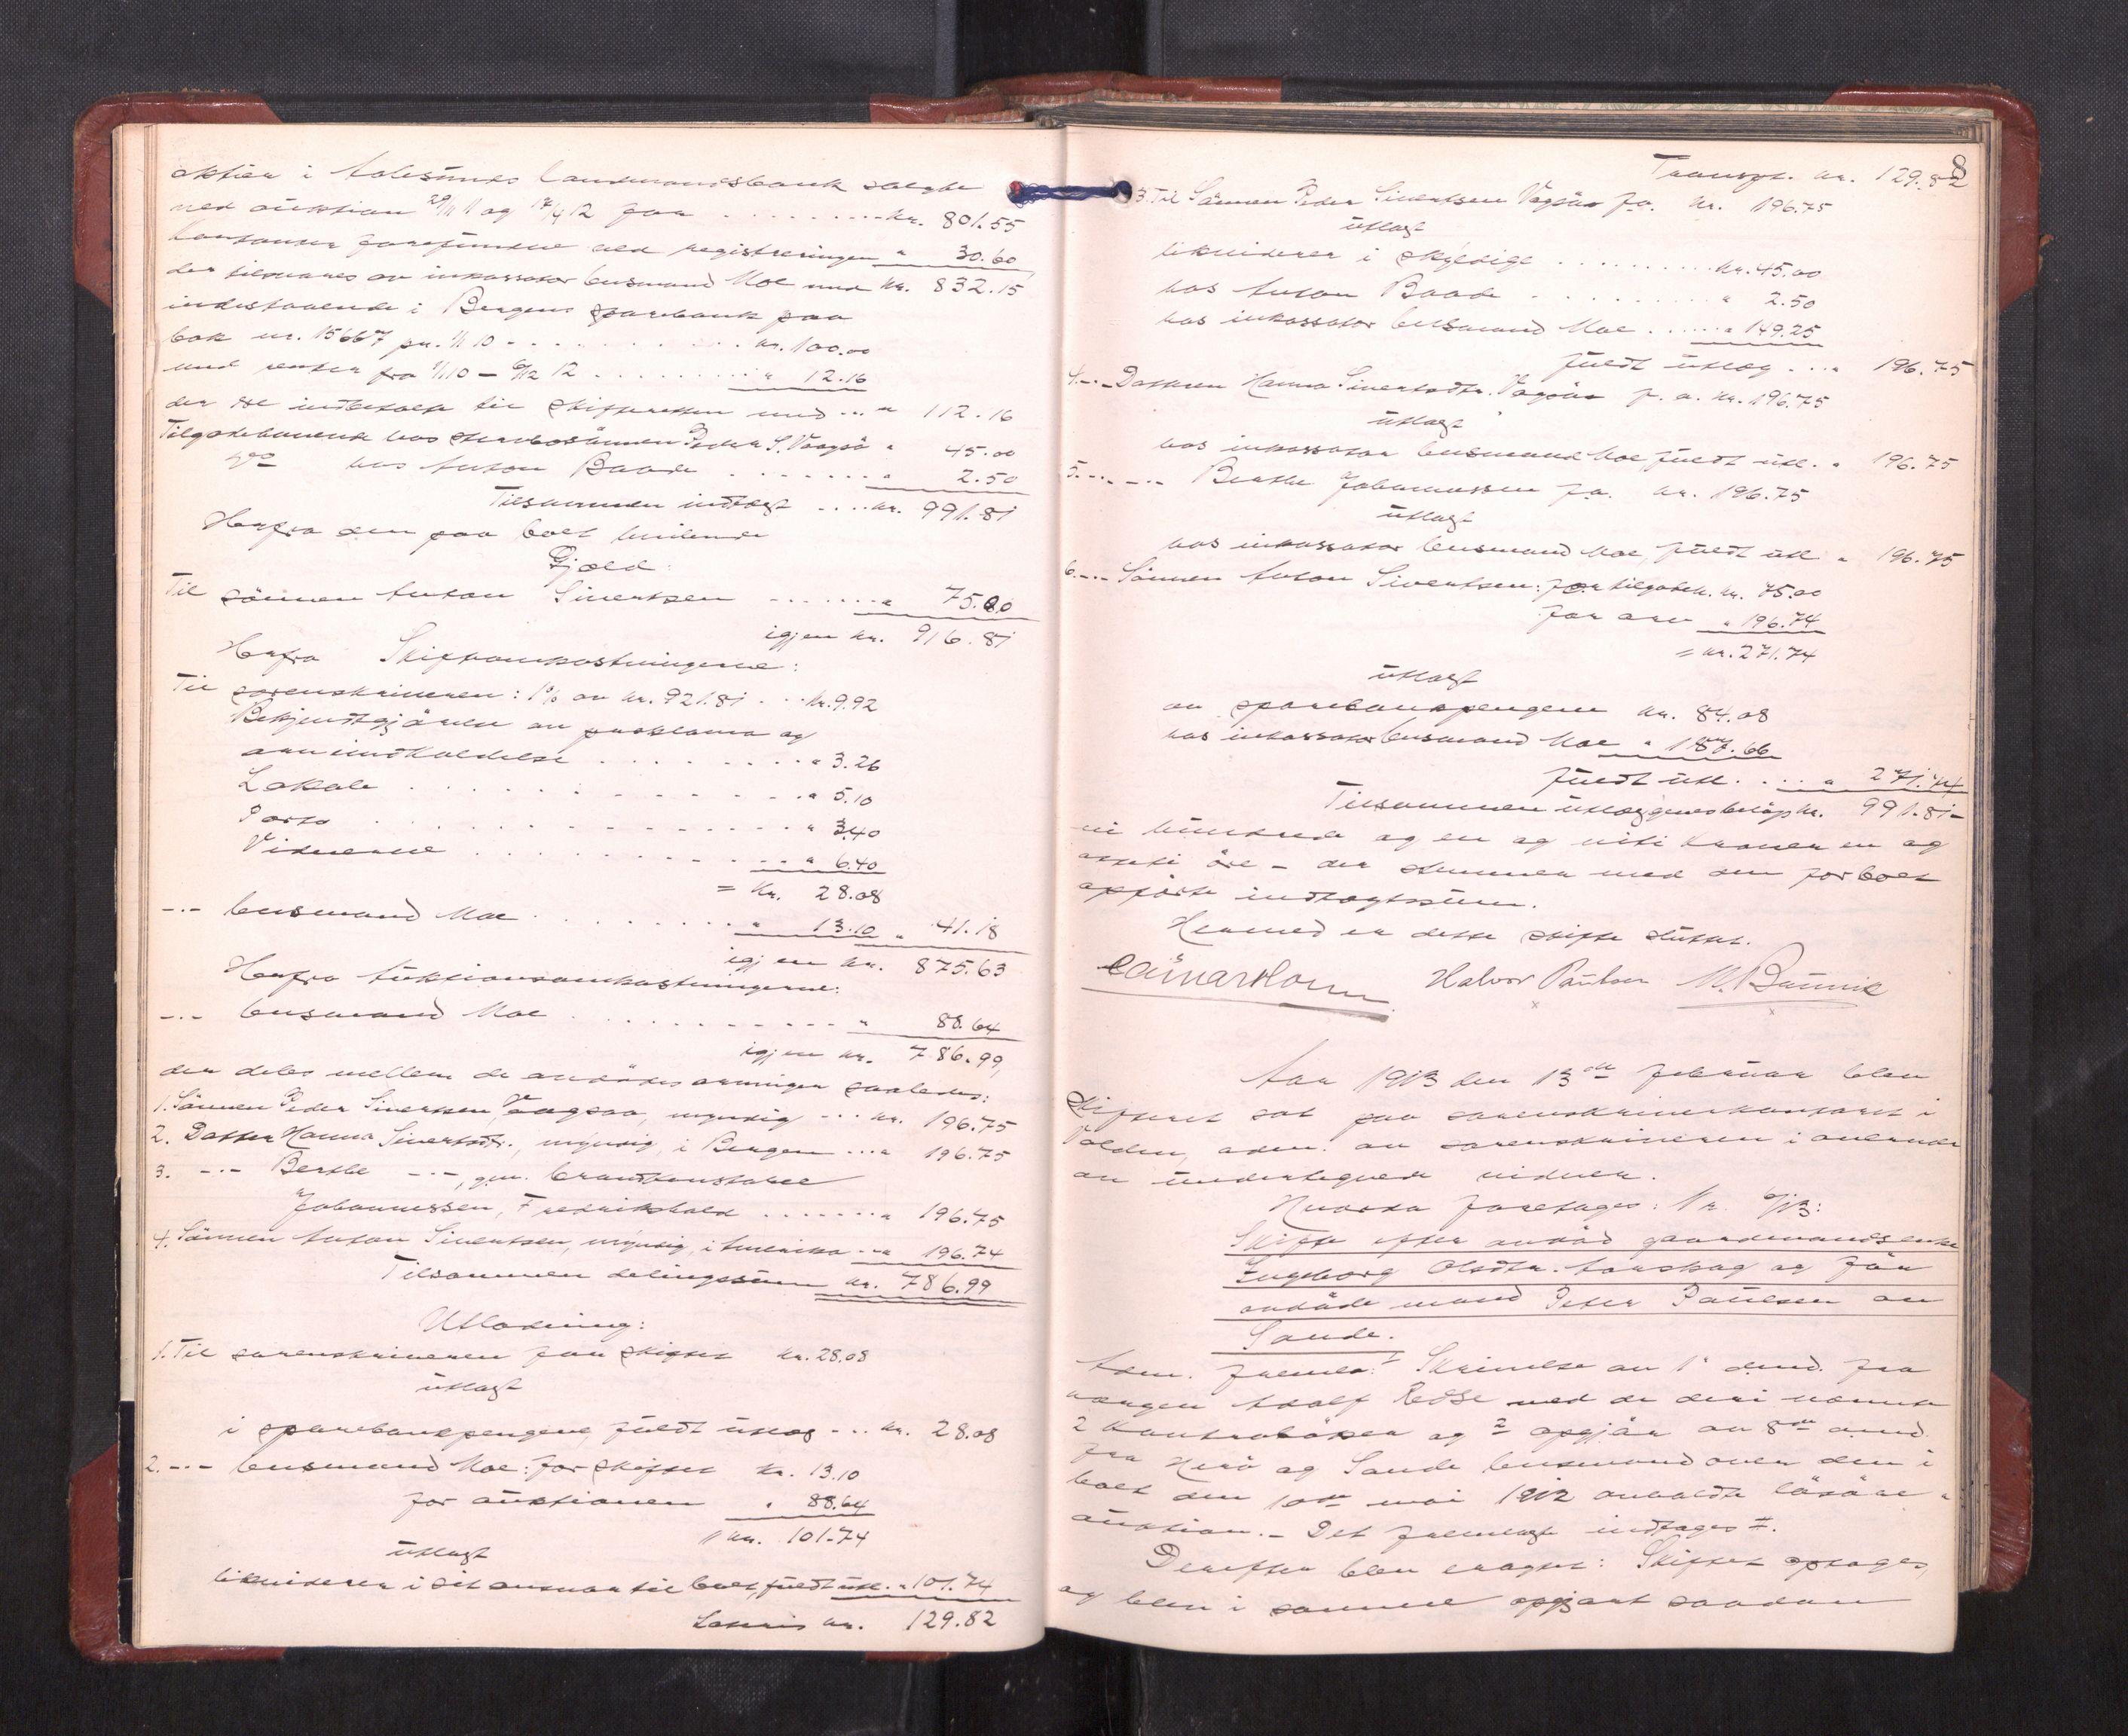 aktier i Aalesunds Landmandsbank solgte
ved auktion 29/11 11 og 17/4 12 for ........ kr. 801.55
kontanter forefundne ved registreringen " 30.60
der tilsvares av inkassator lensmand Moe med kr. 832.15
indestaaende i Bergens sparebank paa
bok nr. 15667 pr. 1/1 10 - ........ kr. 100.00
med renter fra 1/1 10 - 12 ........ " 12.16
der er indbetalt til skifteretten med ... " 112.16
Tilgodehavende hos stervbosönnen Peder S. Vaagsö " 45.00
do hos Anton Baade ....... " 2.50
Tilsammen indtægt .... kr. 991.81
Herfra den paa boet hvilende
Gjæld:
Til sönnen Anton Sivertsen ....... " 75.00
igjen kr. 916.81
Herfra Skifteomkostningerne:
Til sorenskriveren: 1% av kr. 921.81 ... kr. 9.92
Bekjendtgjörelse av proklama og
arveindkaldelse ........ " 3.26
Lokale ........ " 5.10
Porto ........ " 3.40
Vidnerne ........ " 6.40
= kr. 28.08
-"- lensmand Moe ........ " 13.10 " 41.18
igjen kr. 875.63
Herfra Auktionsomkostningerne:
-"- lensmand Moe ........ " 88.64
igjen kr. 786.99,
der deles mellem de avdödes arvinger saaledes:
1. Sönnen Peder Sivertsen Vaagsö, myndig ... kr. 196.75
2. Datter Hanna Sivertsdtr., myndig, i Bergen ... " 196.75
3. -"- Berthe -"-, gm. brandkonstabel
Johannessen, Fredrikshald ....... " 196.75
4. Sönnen Anton Sivertsen, myndig, i Amerika ... " 196.74
Tilsammen delingssum kr. 786.99
Utlodning:
1. Til sorenskriveren for skiftet kr. 28.08
utlagt
i sparebankpengene, fuldt utlæg ... kr. 28.08
2. -"- lensmand Moe: for skiftet kr. 13.10
for auktionen " 88.64
= kr. 101.74
utlagt
likviderer i sit ansvar til boet, fuldt utl. " 101.74
Lateris kr. 129.82
8
Transpt. kr. 129.82
3. Til Sönnen Peder Sivertsen Vaagsö f. a. kr. 196.75
utlagt
likviderer i skyldige ......... kr. 45.00
hos Anton Baade ......... " 2.50
hos inkassator lensmand Moe ...... " 149.25
fuldt utlæg ... " 196.75
4. -"- Datteren Hanna Sivertsdtr. Vaagsö f. a. kr. 196.75
utlagt
hos inkassator lensmand Moe, fuldt utl. " 196.75
5. -"- -"- Berthe Johannessen f. a. kr. 196.75
utlagt
hos inkassator lensmand Moe, fuldt utl. " 196.75
6. -"- Sönnen Anton Sivertsen: for tilgodeh. kr. 75.00
for arv " 196.74
= kr. 271.74
utlagt
av sparebankpengene kr. 84.08
hos inkassator lensmand Moe " 187.66
fuldt utl. .... " 271.74
Tilsammen utlæggenes belöp kr. 991.81 -
ni hundrede og en og niti kroner en og
otteti öre - der stemmer med den for boet
opförte indtægtssum.
Hermed er dette skifte sluttet.
Halvor Paulsen M. Bunnik
Aar 1913 den 13de februar blev
skifteret sat paa sorenskriverkontoret i
Volden, adm. av sorenskriveren i overvær
av undertegnede vidner.
Hvorda foretages: Nr. /13:
Skifte efter avdöd gaardmandsenke
Ingeborg Olsdtr. Aarskog og för
avdöde mand Peter Paulsen av
Sande.
Adm. fremla: I Skrivelse av 1' dmd. fra
vergen Adolf med de deri nævnte
2 kontraböker og 2 opgjör av 8de dmd.
fra Herö og Sande lensmand over den i
boet den 10de mai 1912 avholdte lösöre-
auktion. - Det fremlagte indtages II.
Derefter blev eragtet: Skiftet optages,
og blev i samme opgjort saadan